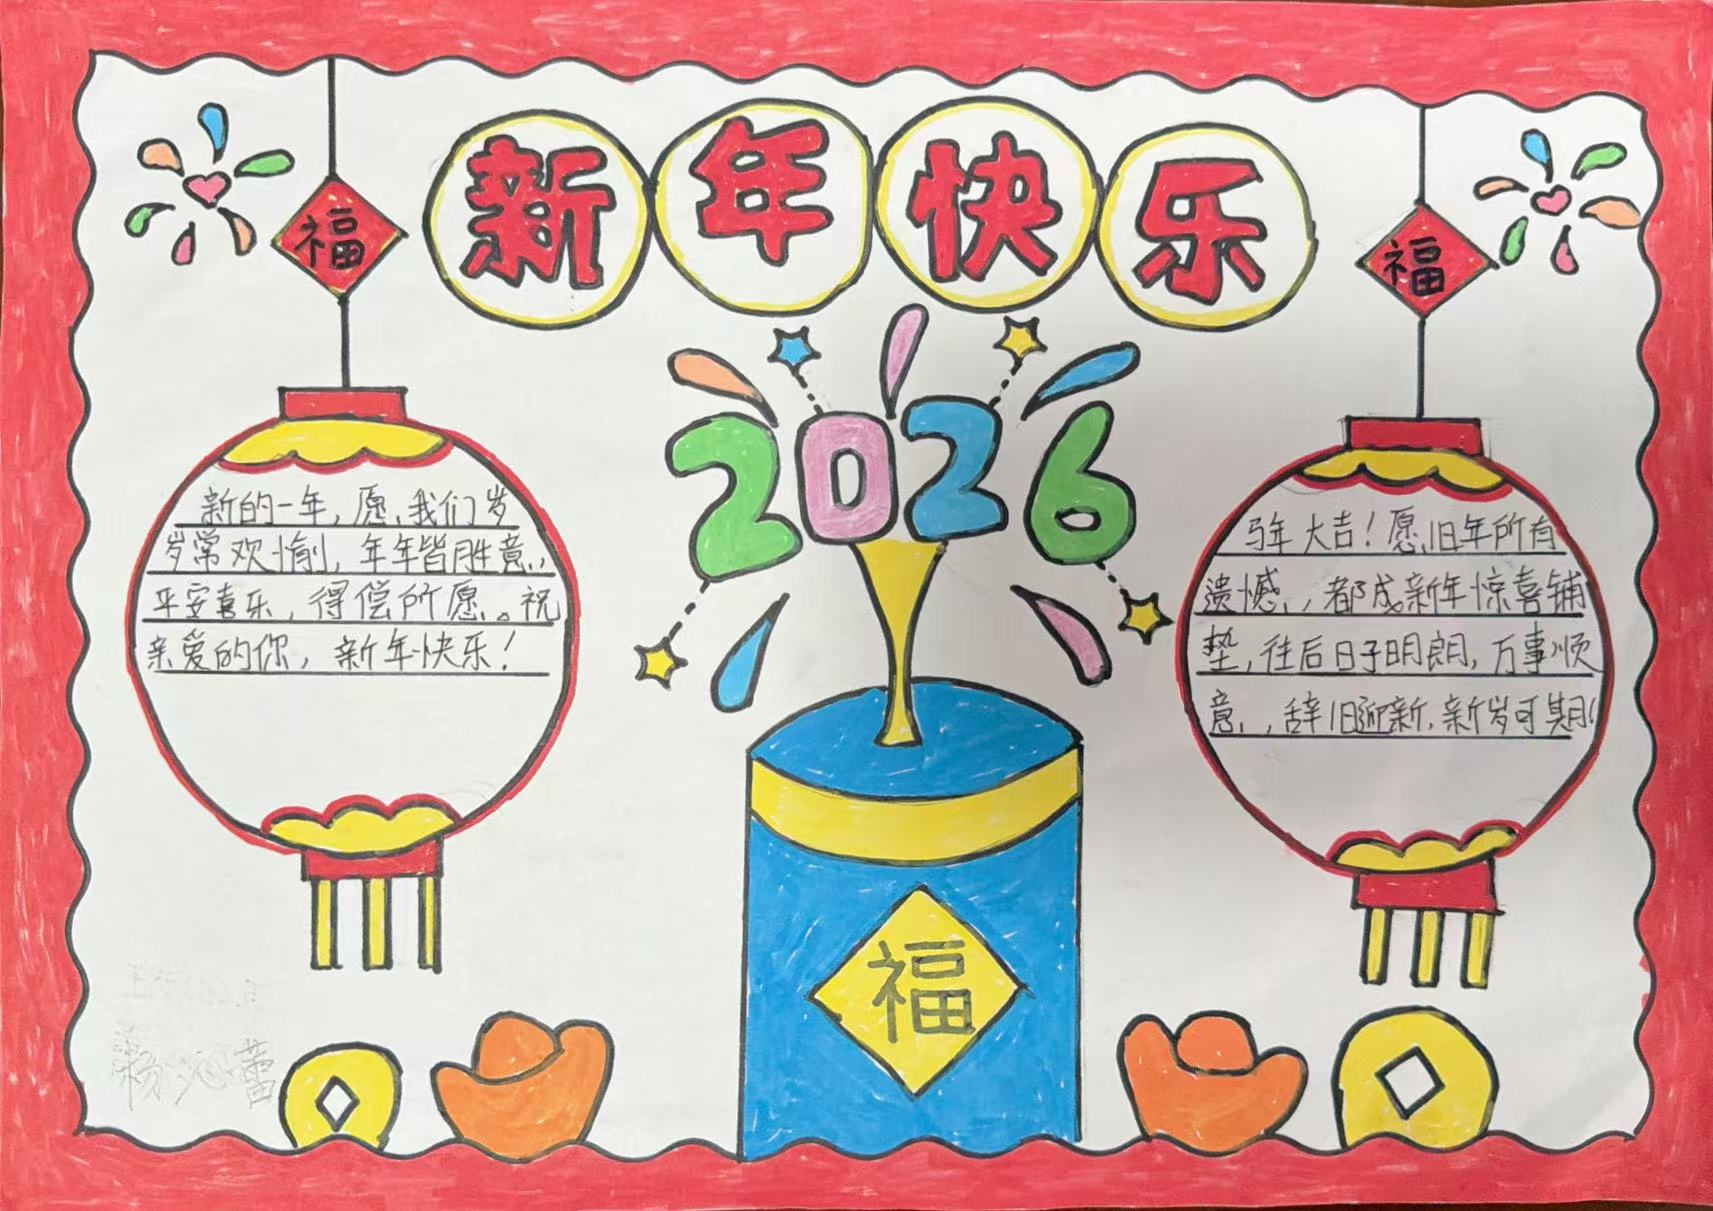 新年快乐
福
福
2026
新的一年,愿我们岁
岁常欢愉,年年皆胜意,
平安喜乐,得偿所愿。祝
亲爱的你,新年快乐!
马年大吉!愿旧年所有
遗憾,都成新年惊喜铺
垫,往后日子明朗,万事顺
意,辞旧迎新,新岁可期!
福